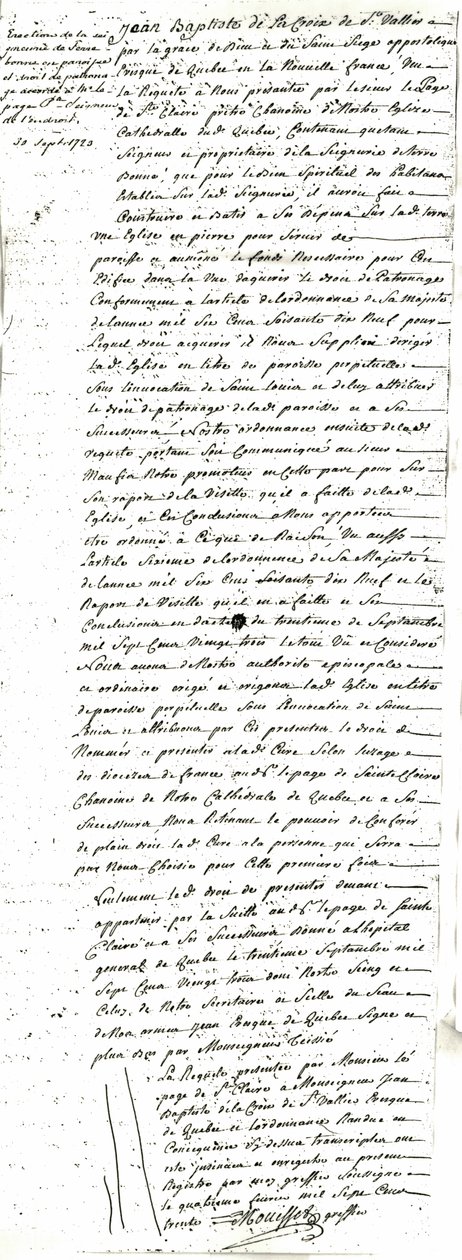 Erection de la sei
gneurie de Terre
bonne en paroisse
et droit de patrona
ge accordé à Mr le
page Ptre Seigneur
de l'endroit,
30 Sept. 1723
Jean Baptiste de La Croix de St. Vallier
par la grace de Dieu et du Saint Siege appostolique
Evesque de Quebec en la Nouvelle france Vue
La Requete a Nous presentée par le sieur le Page
de Ste. Claire prêtre Chanoine de Nostre Eglize
Cathedralle dud. Quebec, Contenant quetant
Seigneur et proprietaire de la Seigneurie de terre
Bonne, que pour le Bien Spirituel des habitans
Etablis Sur lad. Seigneurie, il auroit fait
Construire et Batir a Ses Dépens Sur lad. terre
Vne Eglise en pierre pour Servir de
paroisse et aumôné le fonds Nessessaire pour Cet
Edifice dans la Vue daquerir le droit de Patronage
Conformement a larticle de lordonnance de Sa Majesté
de lannee mil Six Cens Soisante dix Neuf pour
Lequel droit acquerir il Nous Supplioit deriger
Lad. Eglise en titre de paroisse perpetuelle
Sous linvocation de Saint Louis et de luy attribuer
Le droit de patronage de lad. paroisse et a Ses
Successeurs, Nostre ordonnance ensuite de lad.
requete portant Soit Communiqué au sieur
Maufis Notre promoteur en Cette part pour Sur
Son raport de la Visitte qu'il a faitte de lad.
Eglise, et Ces Conclusions a Nous apportées
etre ordonné à Ce que de Raison, Vu aussy
Larticle Sixieme de lordonnence de Sa Majesté
de lannee mil Six Cens Soisante dix Neuf et le
Raport de Visitte qu'il en a faitte et Ses
Conclusions en datte du trentieme de Septembre
mil Sept Cens Vingt trois le tout Vû et Consideré
Nous avons de Nostre authorité episcopale
et ordinaire erigé et erigeons lad. Eglise en titre
de paroisse perpetuelle Sous Linvocation de Saint
Louis et attribuons par Ces presentes le droit de
Nommer et presenter a lad. Cure Selon luzage
des diocezes de france aud. Sr. le page de Sainte Claire
Chanoine de Notre Cathédrale de Quebec et a Ses
Successeurs, Nous Retenant le pouvoir de Conferer
de plain droit lad. Cure a la personne qui Serra
par Nous Choisie pour Cette premiere fois
Seulement led. droit de presenter devant
appartenir par la Suitte aud. Sr. le page de Sainte
Claire et a Ses Successeurs Donné a lhopital
general de Quebec le trentieme Septembre mil
Sept Cens Vingt trois sous Nostre Seing et
Celuy de Notre Secretaire et Scelle du Seau
de Nos armes Jean Evesque de Quebec Signe et
plus Bas par Monseigneur Teissié
La Requete presentée par Monsieur le
page de Ste. Claire à Monseigneur Jean
Baptiste de la Croix de St. Vallier Evesque
de Quebec et lordonnance Randue en
Concequence Cy dessus transcriptes ont
esté insinüez et enregistré au present
Registre par moy greffier Soussigné
le quatrieme fevrier mil Sept Cens
trente Rouissot greffier